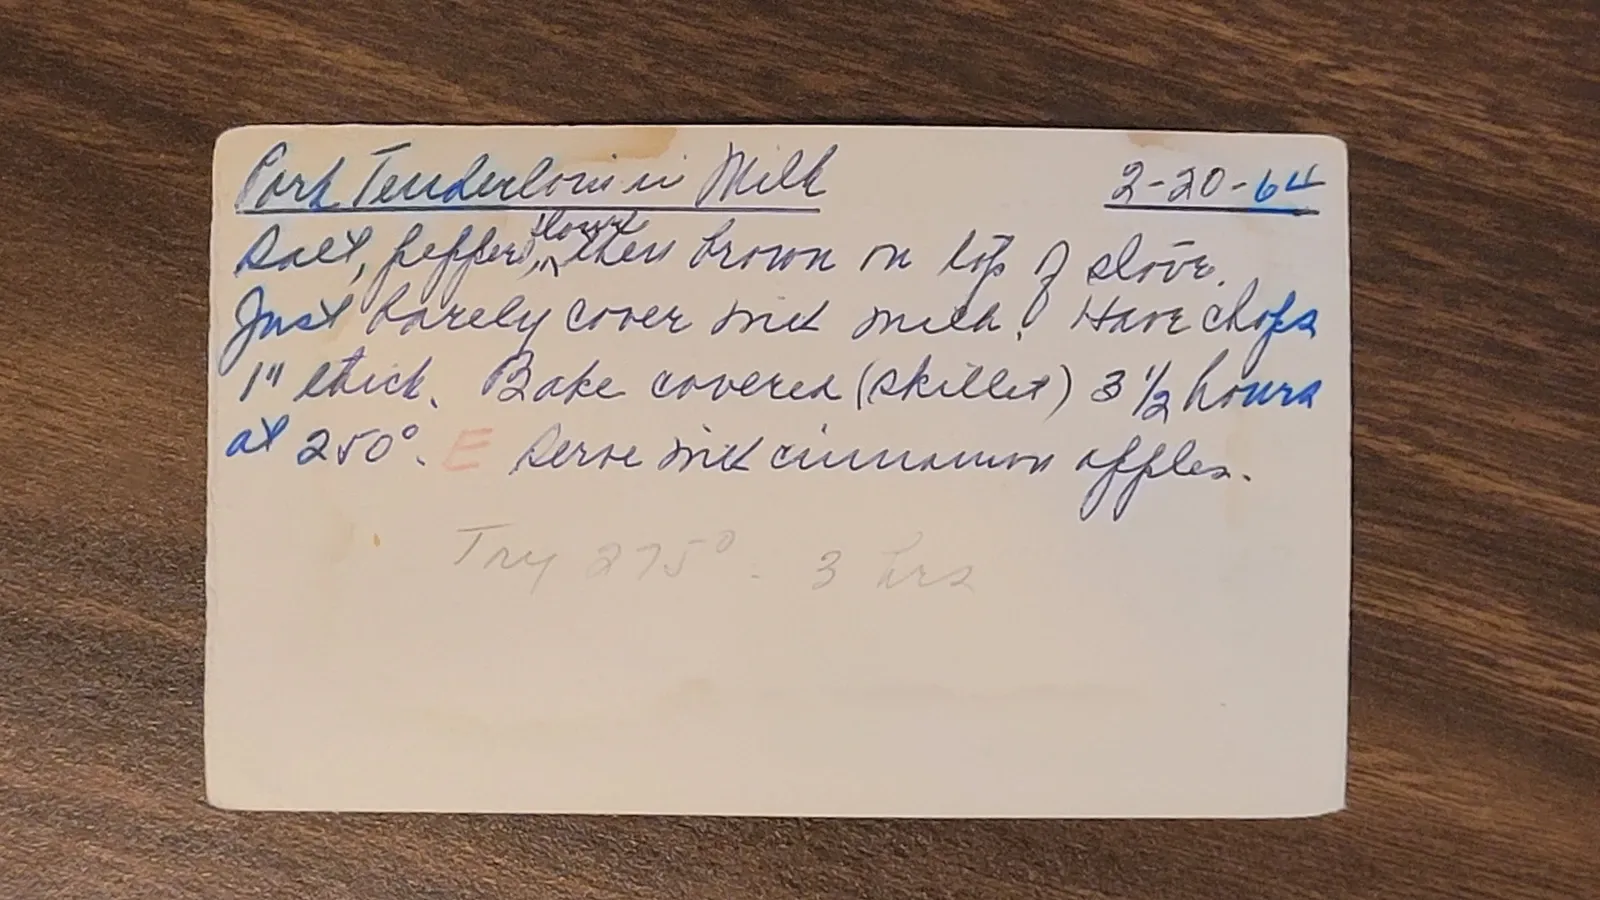 Pork Tenderloin in Milk 2-20-64
Salt, pepper, flour, then brown on top of stove.
Just barely cover with milk. Have chops
1" thick. Bake covered (skillet) 3 1/2 hours
at 250°. E Serve with cinnamon apples.
Try 275° - 3 hrs